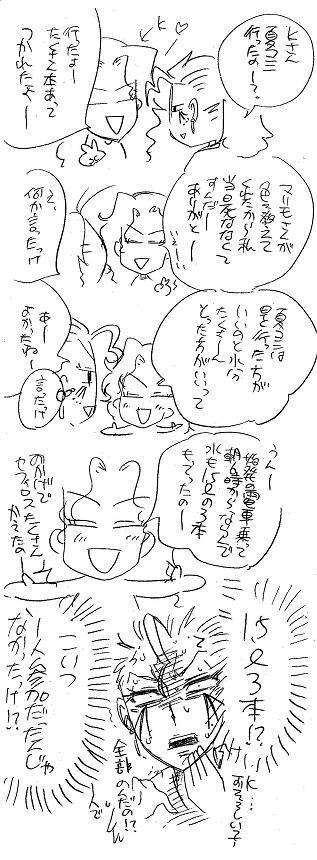 Kさん
夏コミ
行ったのー?
行たよー
たくさん本あって
つかれたよー
K
マリモさんが
色々教えて
くれたから私
当日死ななくて
すんだー
ありがとー
え、
何か言たっけ
夏コミは
早く行った方が
いいのと水分
たくさーん
とった方がいいって
あー
よかったねー
言たっけ
うんー
始発の電車乗て
朝6時からならんで
水も1.5ℓの3本
もってったのー
おかげで
セフィロスたくさん
かえたの
1.5ℓ3本!?
こいつ
一人参加だったんじゃ
なかったっけ!?
K…
恐そろしい子!
全部
のんだの!?